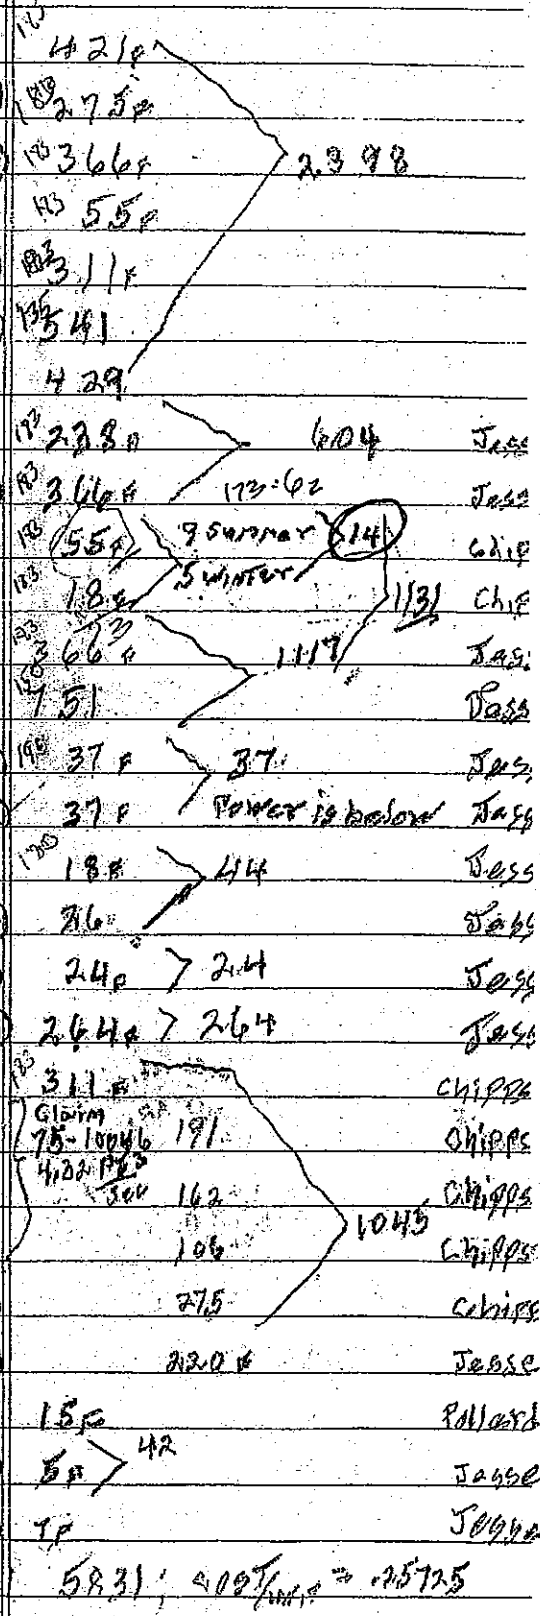 183
421F
183 275F
183 366F 2.398
183 55F
183 311F
135 541
429
183 238F 604 Jess
183 366F 173.62 Jess
183 55F 9 summer 514 Chip
183 18F 5 winter 1131 Chip
183 366F 1117 Jess
751 Jess
37F 37 Jess
37F Power is below Jess
18F 44 Jess
26 Jess
24F > 24 Jess
264F > 264 Jess
183 311F Chipps
Claim
75-1004b 191 Chipps
4.32 Ft3
Sec 162 Chipps
106 1045 Chipps
275 Chipps
220F Jesse
15F Pollard
5F > 42 Jesse
7F Jesse
5831; = .25725